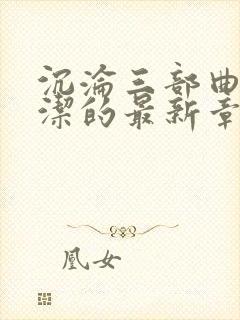 沉淪三部曲
潔的最新章
凰女